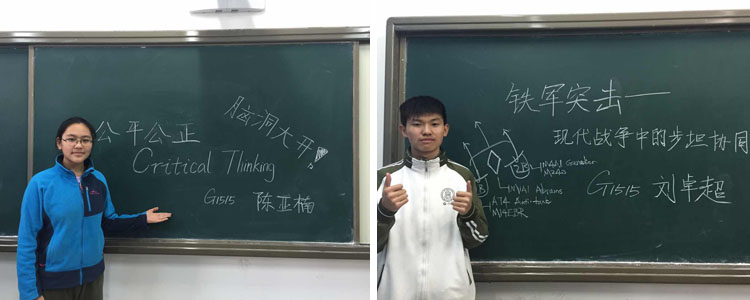 公平公正
脑洞大开!
Critical Thinking
G1515 陈亚楠
铁军突击——
现代战争中的步坦协同
G1515 刘卓超
M1A1 Abrams
AT4 Anti-tank